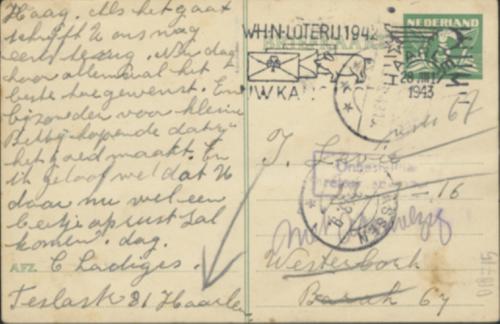 Haag. Als het gaat
schrijft U ons nog
eens terug. Nu dag
hoor allemaal het
beste toegewenst. En
bijzonder voor kleine
Betty hopende dat zy
het goed maakt. En
ik geloof wel dat U
daar nu wel een
beetje op rust zal
komen. dag.
AFZ. C Ladiges.
Teslastr 81 Haarlem
W.H.N-LOTERIJ 1942
NEDERLAND
28 VIII
1943
67
J. Levie
Onbestelbaar
retour
16
ASSEN
Westerbork
Barak 67